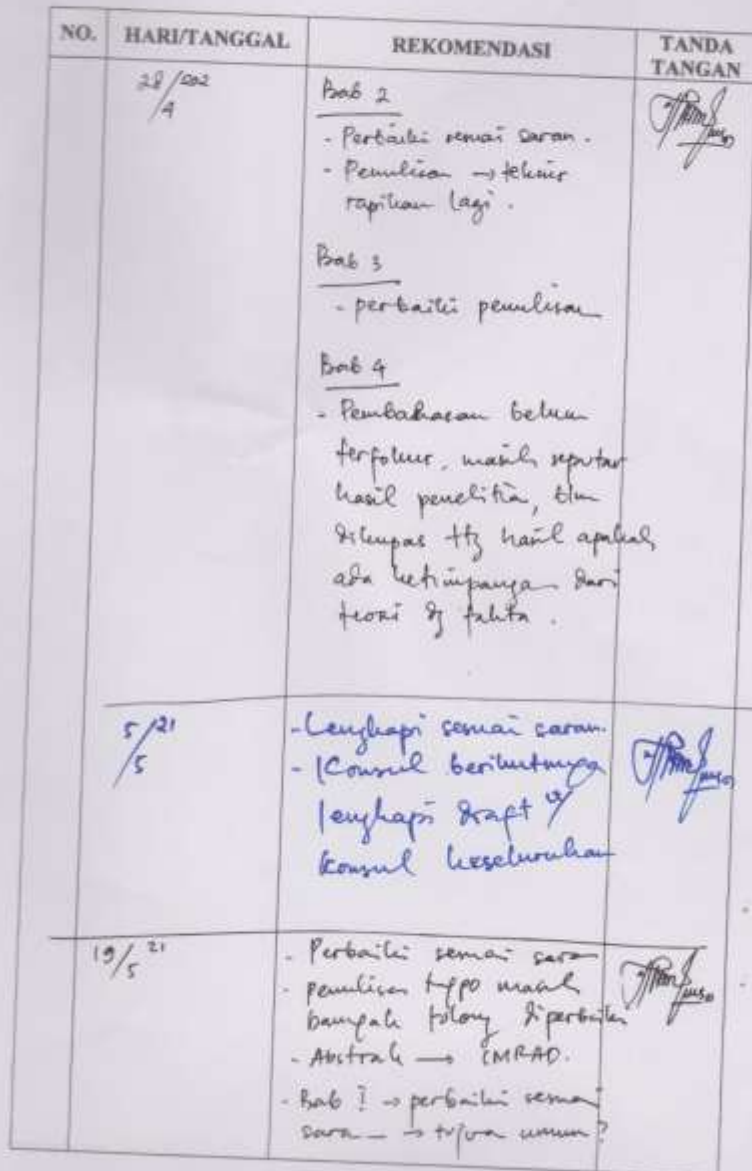 NO. HARI/TANGGAL REKOMENDASI TANDA TANGAN
28/4 202
Bab 2
- Perbaiki sesuai saran.
- Penulisan → teknis
rapikan lagi.
Bab 3
- perbaiki penulisan
Bab 4
- Pembahasan belum
terfokus, masih seputar
hasil penelitian, blm
dikupas ttg hasil apakah
ada ketimpangan dari
teori dg fakta.
5/5 21
- Lengkapi sesuai saran.
- Konsul berikutnya
lengkapi draft u/
konsul keseluruhan
19/5 21
- Perbaiki sesuai saran
- penulisan typo masih
banyak tolong diperbaiki
- Abstrak → IMRAD.
- Bab 1 → perbaiki sesuai
saran → tujuan umum?